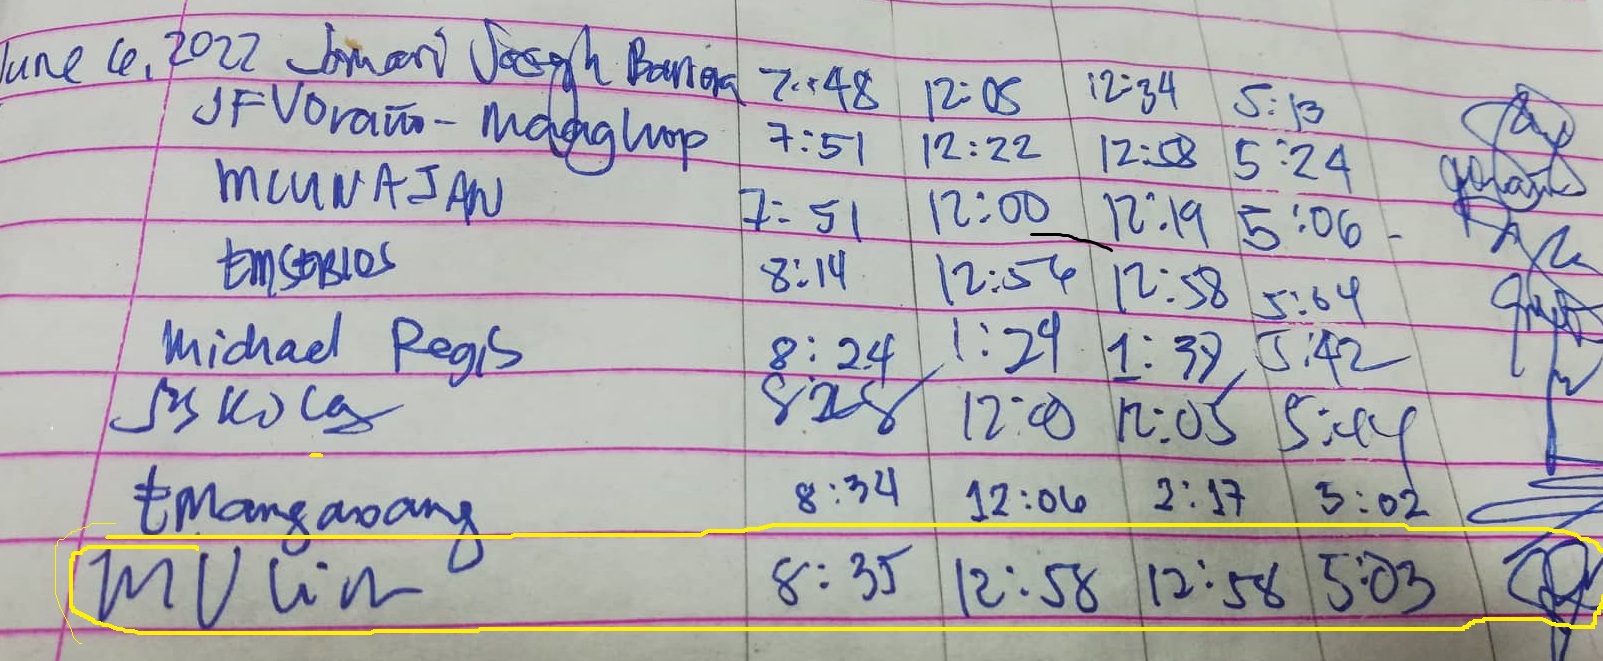 June 6, 2022 Jomari Joseph Barrera 7:48 12:05 12:34 5:13
JFVoraño - Madaghuop 7:51 12:22 12:58 5:24
MCUNAJAN 7:51 12:00 12:19 5:06 -
EMSEBIOS 8:14 12:54 12:58 5:04
Michael Regis 8:24 1:24 1:39 5:42
8:28 12:00 12:05 5:44
EMangaoang 8:34 12:06 2:17 5:02
MV Lim 8:35 12:58 12:58 5:03